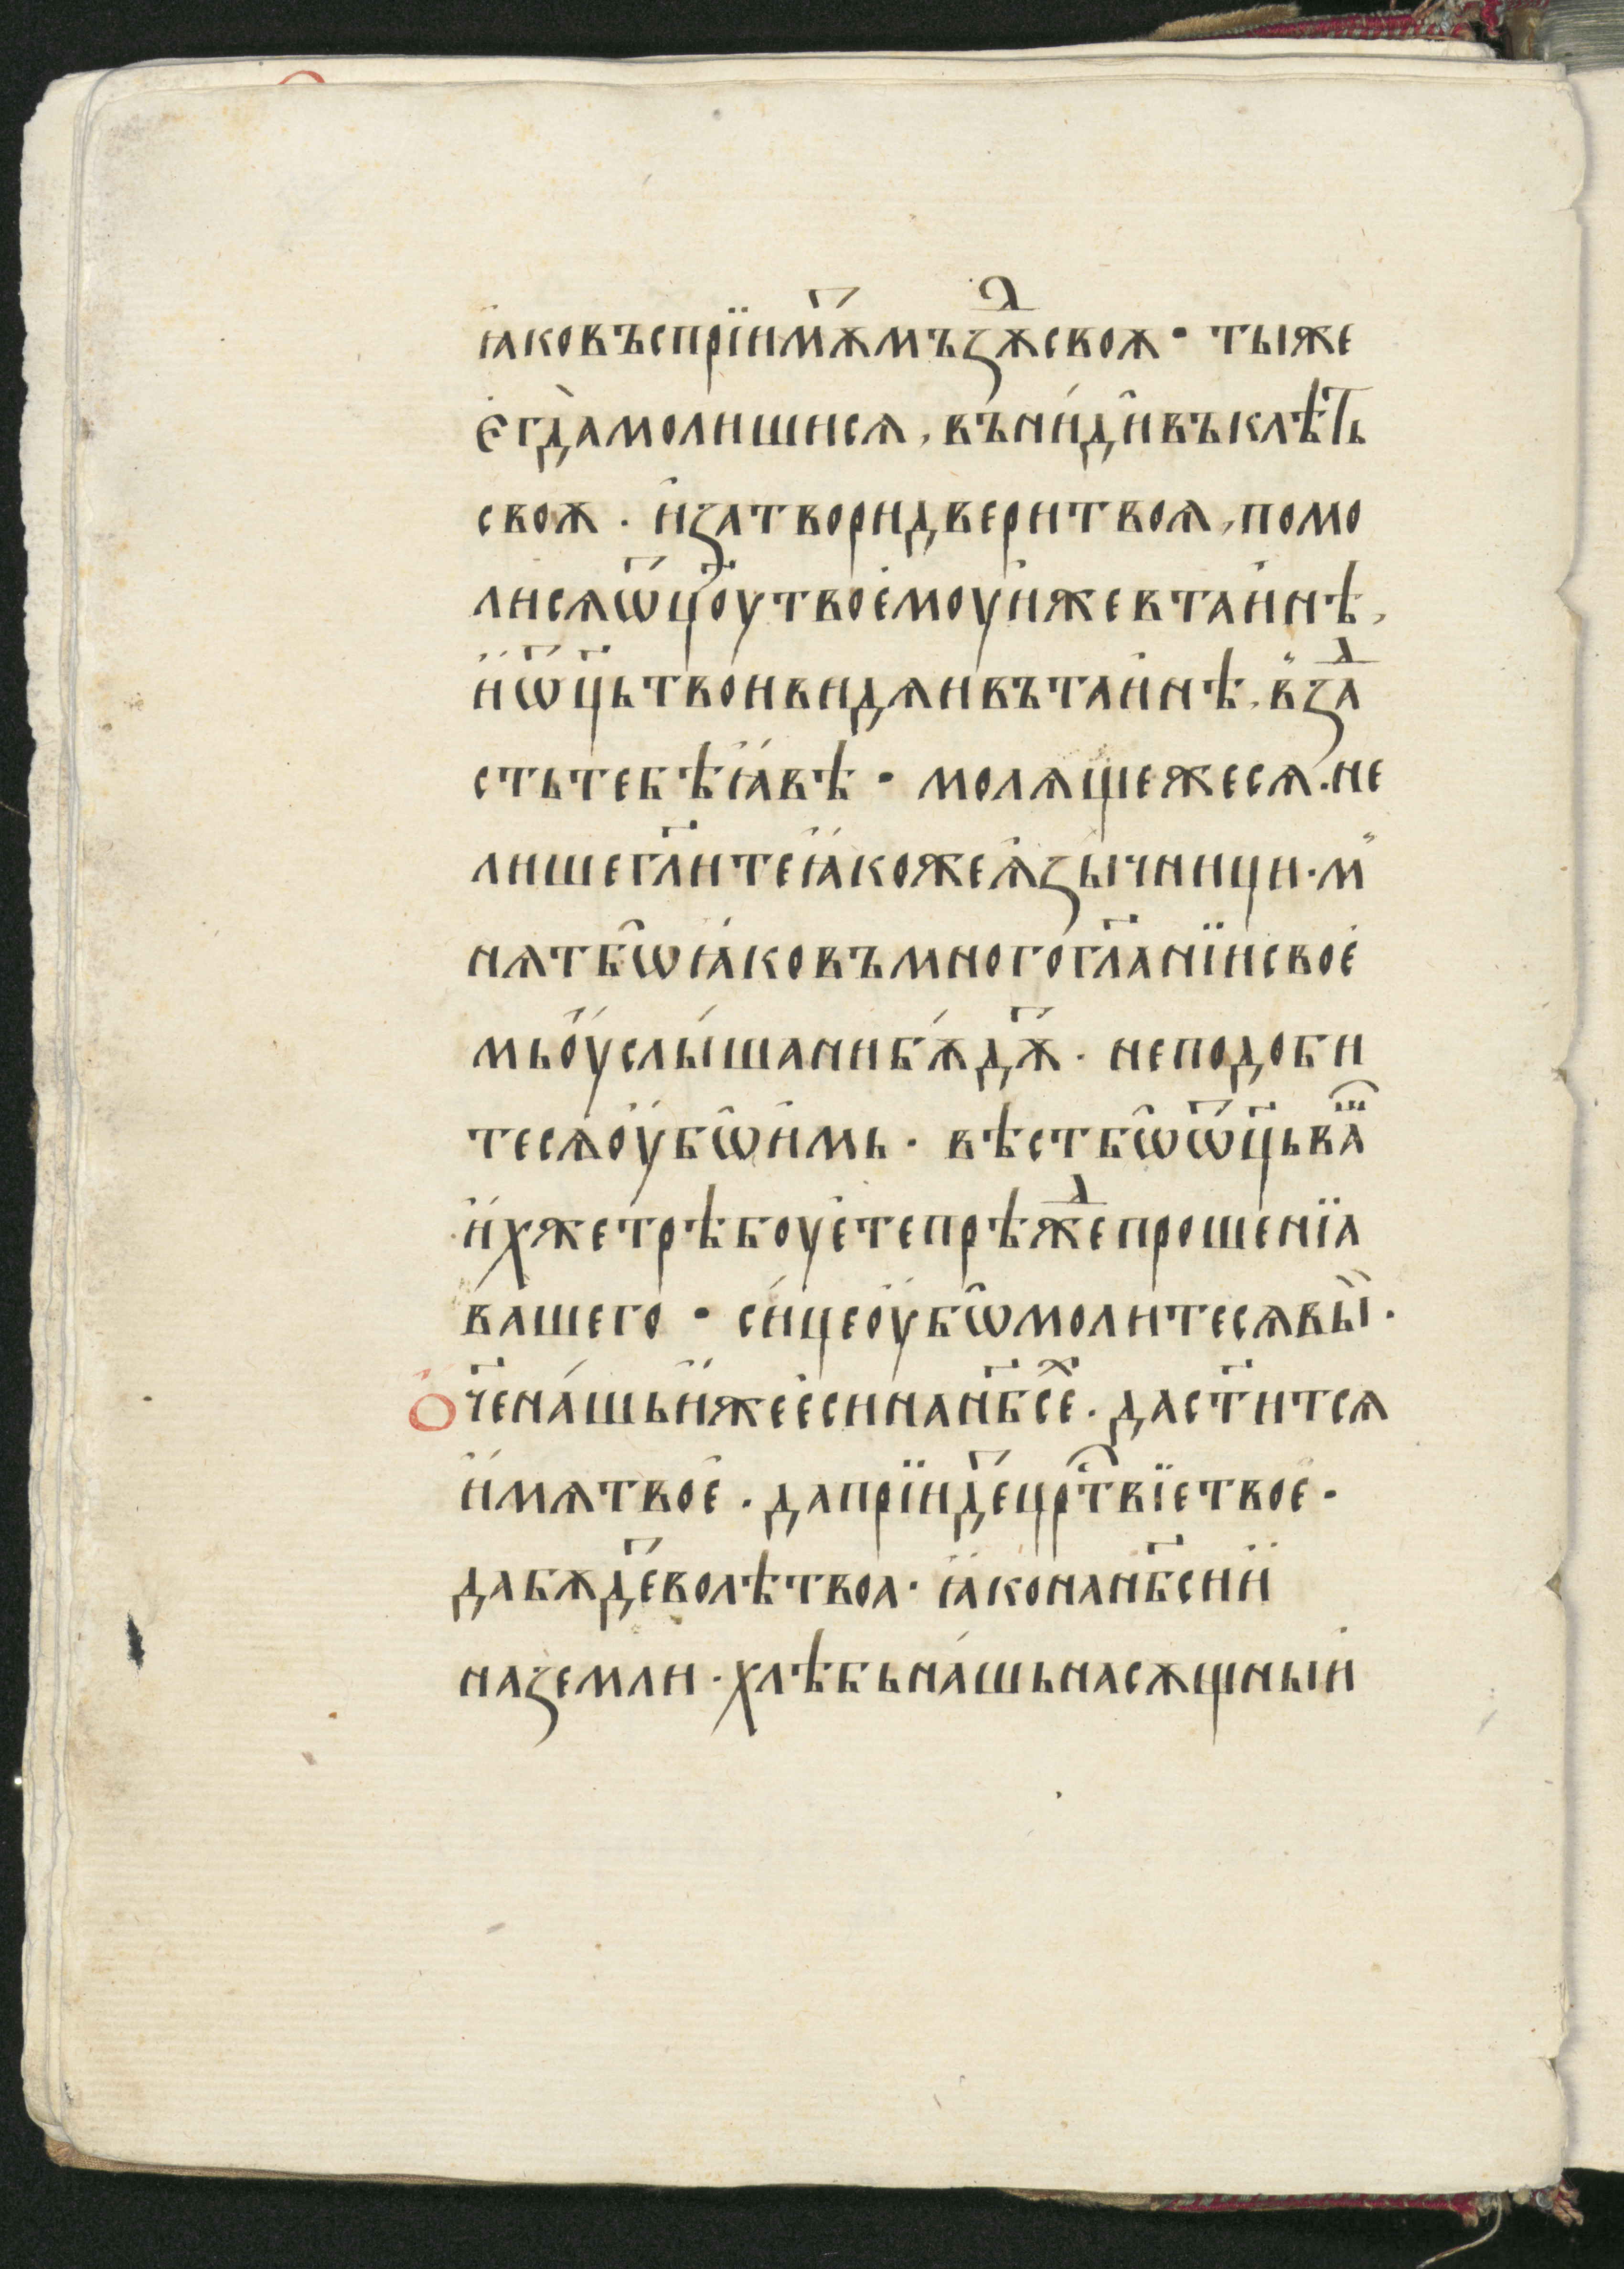 ꙗковъспрїимⷮѫмъзⷣѫсвоѫ · тыже
є҆гда̀молишисѧ, въни́ди̂въклѣ́ть
своѫ . и҆затворидверитвоѧ, помо
лисѧѡ҃ц҃оутвоє҆моуи҆жевтаи҆нѣ,
и҆ѡ҃ц҃ьтвоивидѧивътаи҆нѣ, в̾зⷣа
стьтебѣꙗ҆́вѣ · молѧщежесѧ . не
лишегл҃итеꙗ҆́кожеѧ҆зы́чници . м̾
нѧтбѡ̂ꙗ҆́ковъмногогл҃анїисвоє҆
мьоу҆слы́шанибѫ́дⷮѫ · неподоби
тесѧоу҆бѡ̂и҆мь · вѣстбѡ̂ѡ҃ц҃ьваⷲ
и҆́хжетрѣбоує҆тепрѣжⷣепрошенїа
ва́шего · си́цеоу҆бѡ̂молитесѧвы̏ .
О҆ч҃ена́шьи҆́жеє҆синан҃бсⷯе . даст҃итсѧ
и҆́мѧтвоє҆ . даприїидⷮецр҃ⷭтвїетвоє҆ ·
дабѫдⷮеволѣтвоа · ꙗ҆конан҃бсии҆
наземли · хлѣбьна́шьнасѫщныи҆